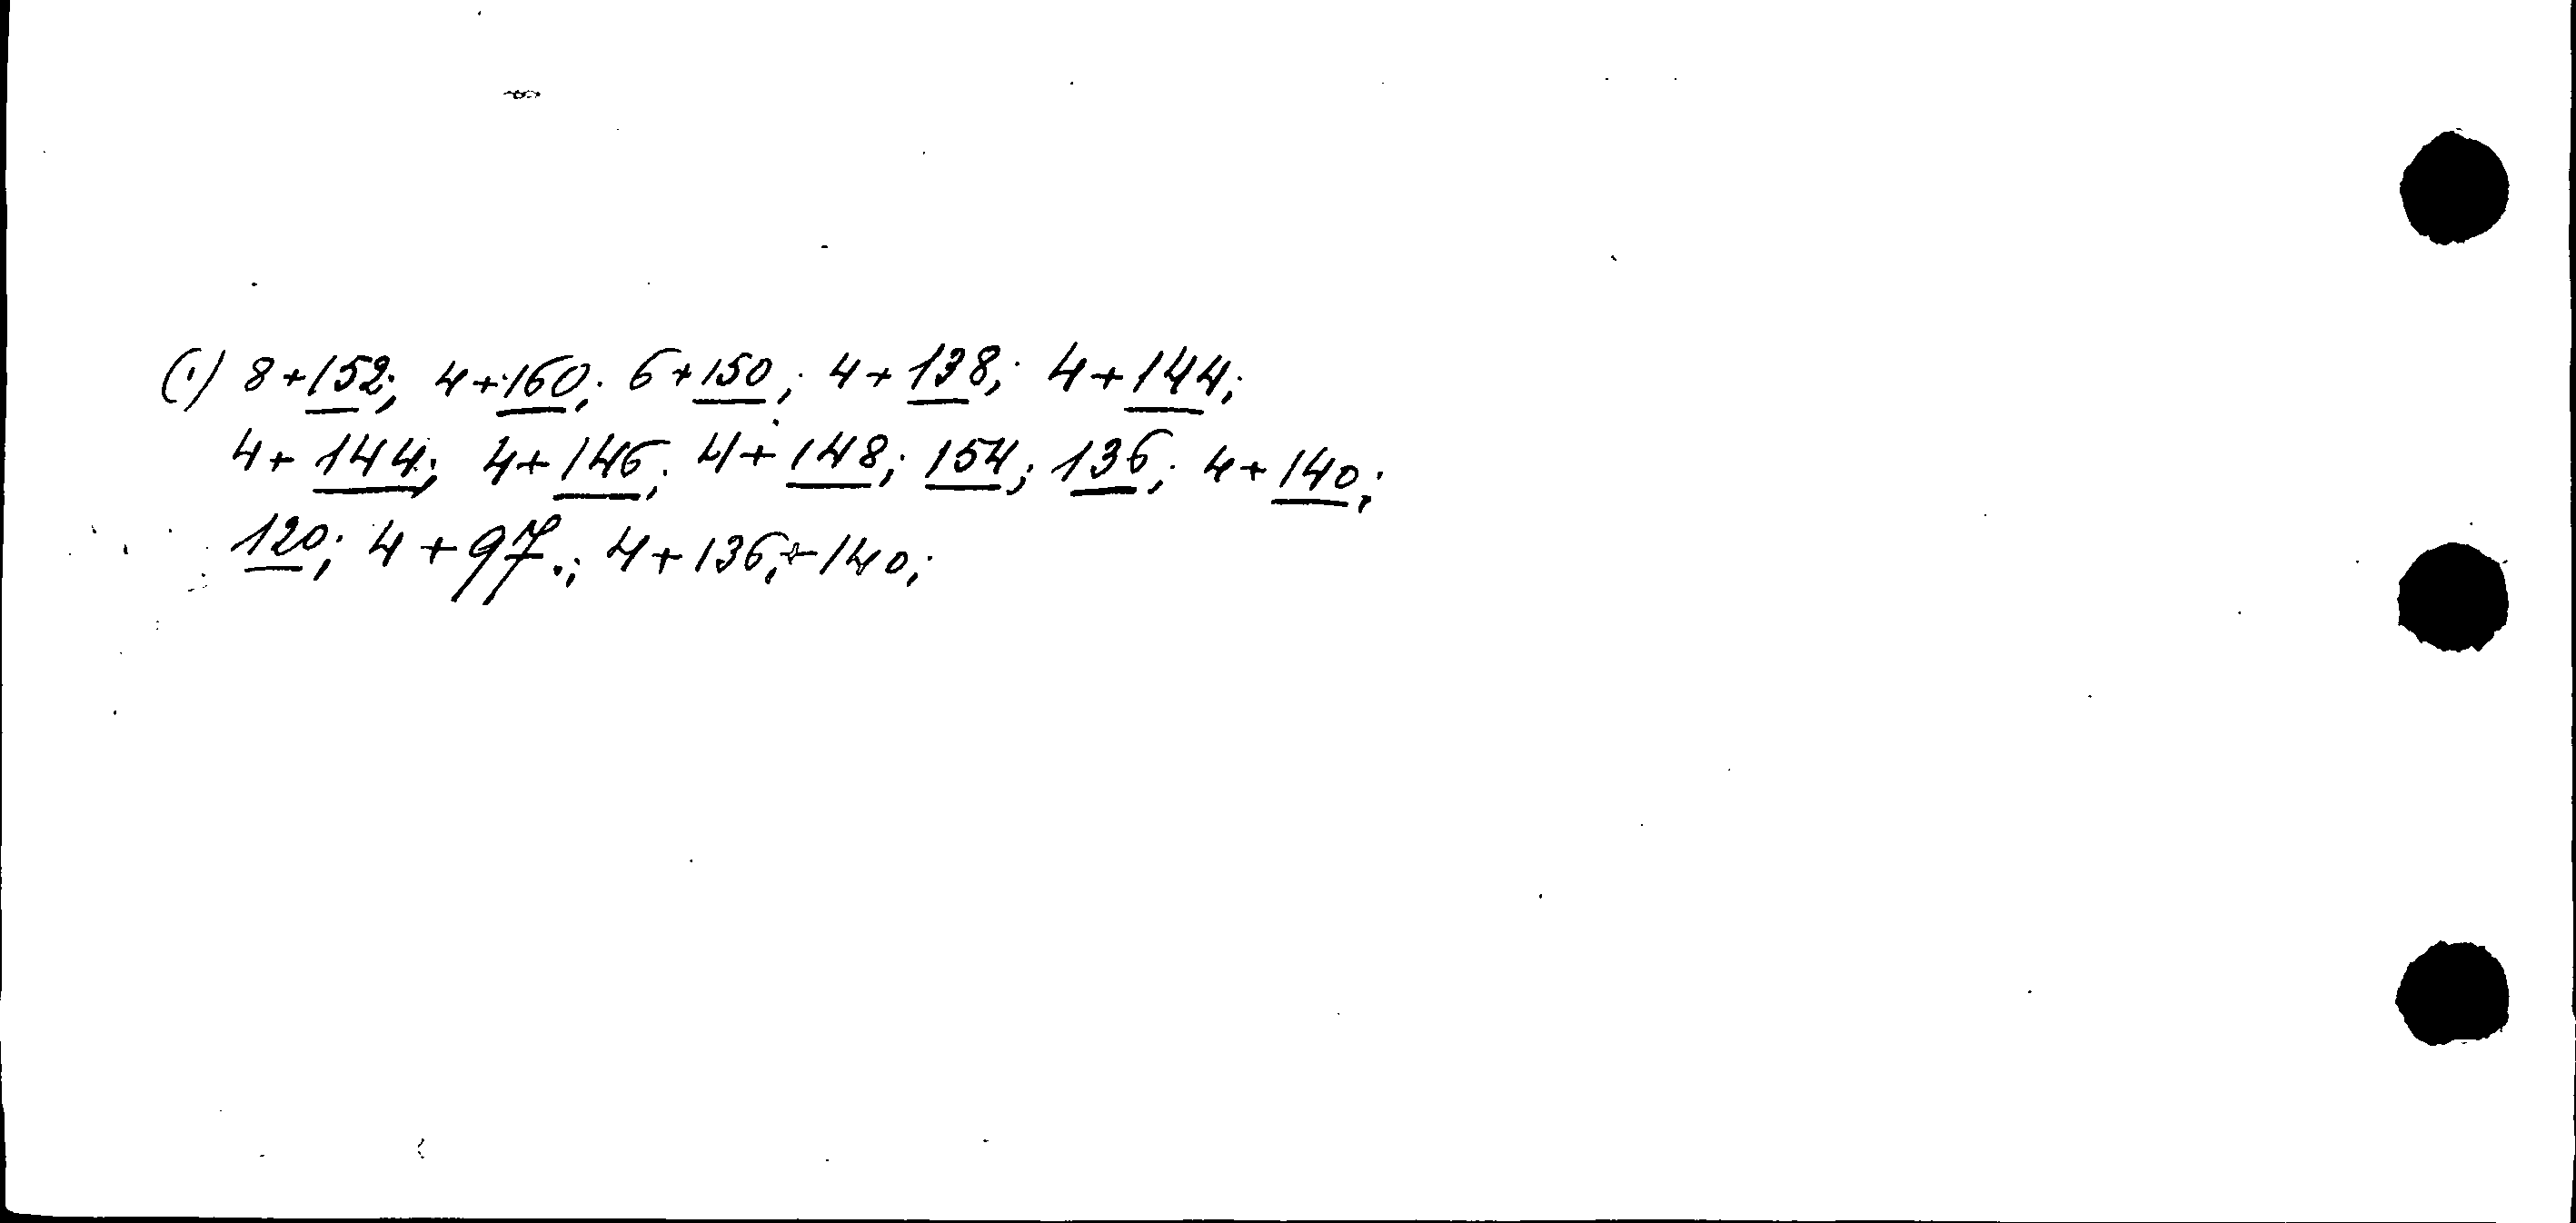 (1) 8+152; 4+160; 6+150; 4+138; 4+144;
4+144; 4+146; 4+148; 154; 136; 4+140;
120; 4+97.; 4+136;+140;